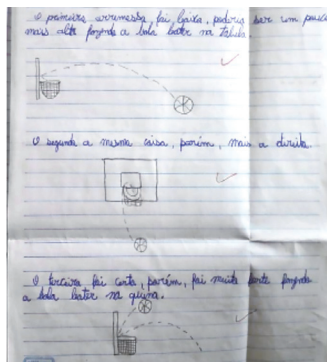 O primeiro arremesso, foi baixo, poderia ser um pouco
mais alto fazendo a bola bater na tabela.
O segundo a mesma coisa, porém, mais a direita.
O terceiro foi certo, porém, foi muito forte fazendo
a bola bater na quina.